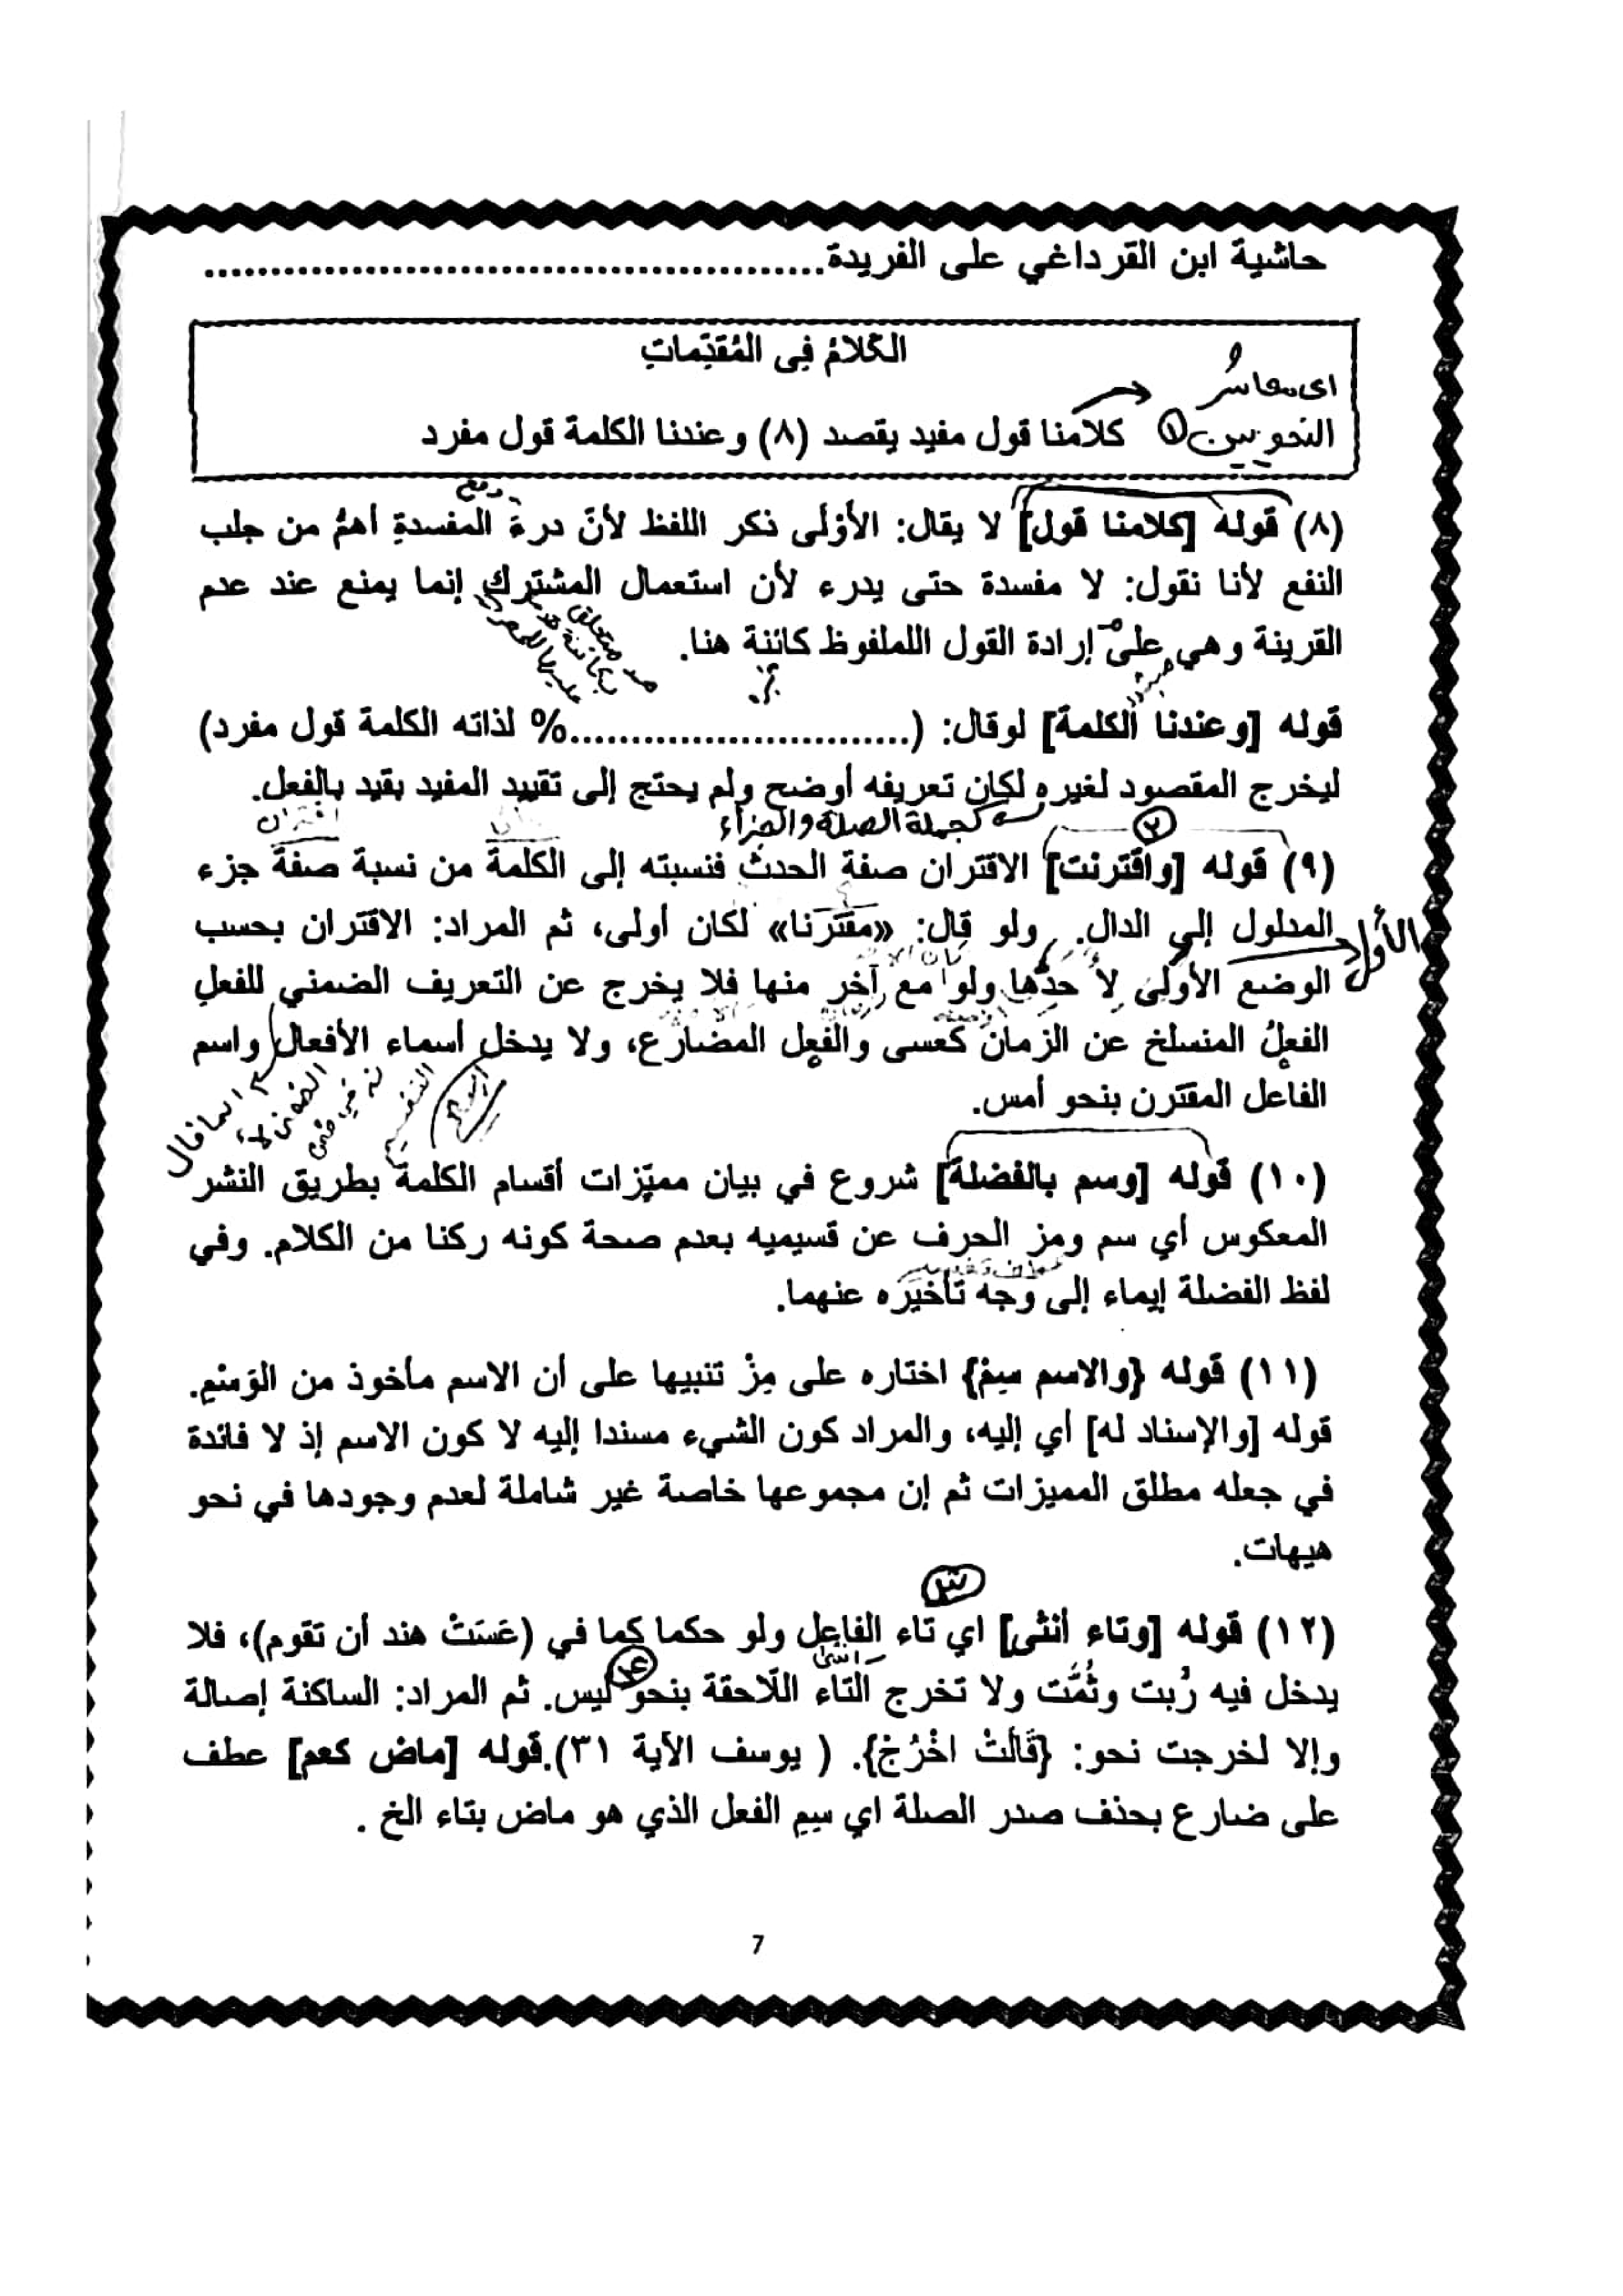 حاشية ابن القرداغي على الفريدة................................................
الكَلامُ فِى المُقَدِّماتِ
اى معاشر
النحويين ١ كلامنا قول مفيد يقصد (٨) وعندنا الكلمة قول مفرد
دفع
(٨) قوله [كلامنا قول] لا يقال: الأوْلَى ذكر اللفظ لأنّ درءَ المفسدةِ أهمُّ من جلب
النفع لأنا نقول: لا مفسدة حتى يدرء لأن استعمال المشترك إنما يمنع عند عدم
القرينة وهي على إرادة القول اللملفوظ كائنة هنا.
قوله [وعندنا الكلمة] لوقال: (............................% لذاته الكلمة قول مفرد)
ليخرج المقصود لغيره لكان تعريفه أوضح ولم يحتج إلى تقييد المفيد بقيد بالفعل.
كجملة الصلة والجزاء
اقتران
٢
(٩) قوله [واقترنت] الاقتران صفة الحدث فنسبته إلى الكلمة من نسبة صفة جزء
المدلول إلى الدال. ولو قال: «مقترنا» لكان أولى، ثم المراد: الاقتران بحسب
الأول
الوضع الأولى لا حدّها ولو مع آخر منها فلا يخرج عن التعريف الضمني للفعلِ
الفعلُ المنسلخ عن الزمان كعسى والفعل المضارع، ولا يدخل أسماء الأفعال واسم
الفاعل المقترن بنحو أمس.
(١٠) قوله [وسم بالفضلة] شروع في بيان مميّزات أقسام الكلمة بطريق النشر
المعكوس أي سم ومز الحرف عن قسيميه بعدم صحة كونه ركنا من الكلام. وفي
لفظ الفضلة إيماء إلى وجه تأخيره عنهما.
(١١) قوله {والاسم سِمْ} اختاره على مِزْ تنبيها على أن الاسم مأخوذ من الوَسْمِ.
قوله [والإسناد له] أي إليه، والمراد كون الشيء مسندا إليه لا كون الاسم إذ لا فائدة
في جعله مطلق المميزات ثم إن مجموعها خاصة غير شاملة لعدم وجودها في نحو
هيهات.
٣
(١٢) قوله [وتاء أنثى] اي تاء الفاعل ولو حكما كما في (عَسَتْ هند أن تقوم)، فلا
٤
يدخل فيه رُبت وثُمَّت ولا تخرج التاء اللّاحقة بنحو ليس. ثم المراد: الساكنة إصالة
وإلا لخرجت نحو: {قَالَتْ اخْرُجْ}. ( يوسف الآية ٣١).قوله [ماض كعم] عطف
على ضارع بحذف صدر الصلة اي سِمِ الفعل الذي هو ماض بتاء الخ .
7